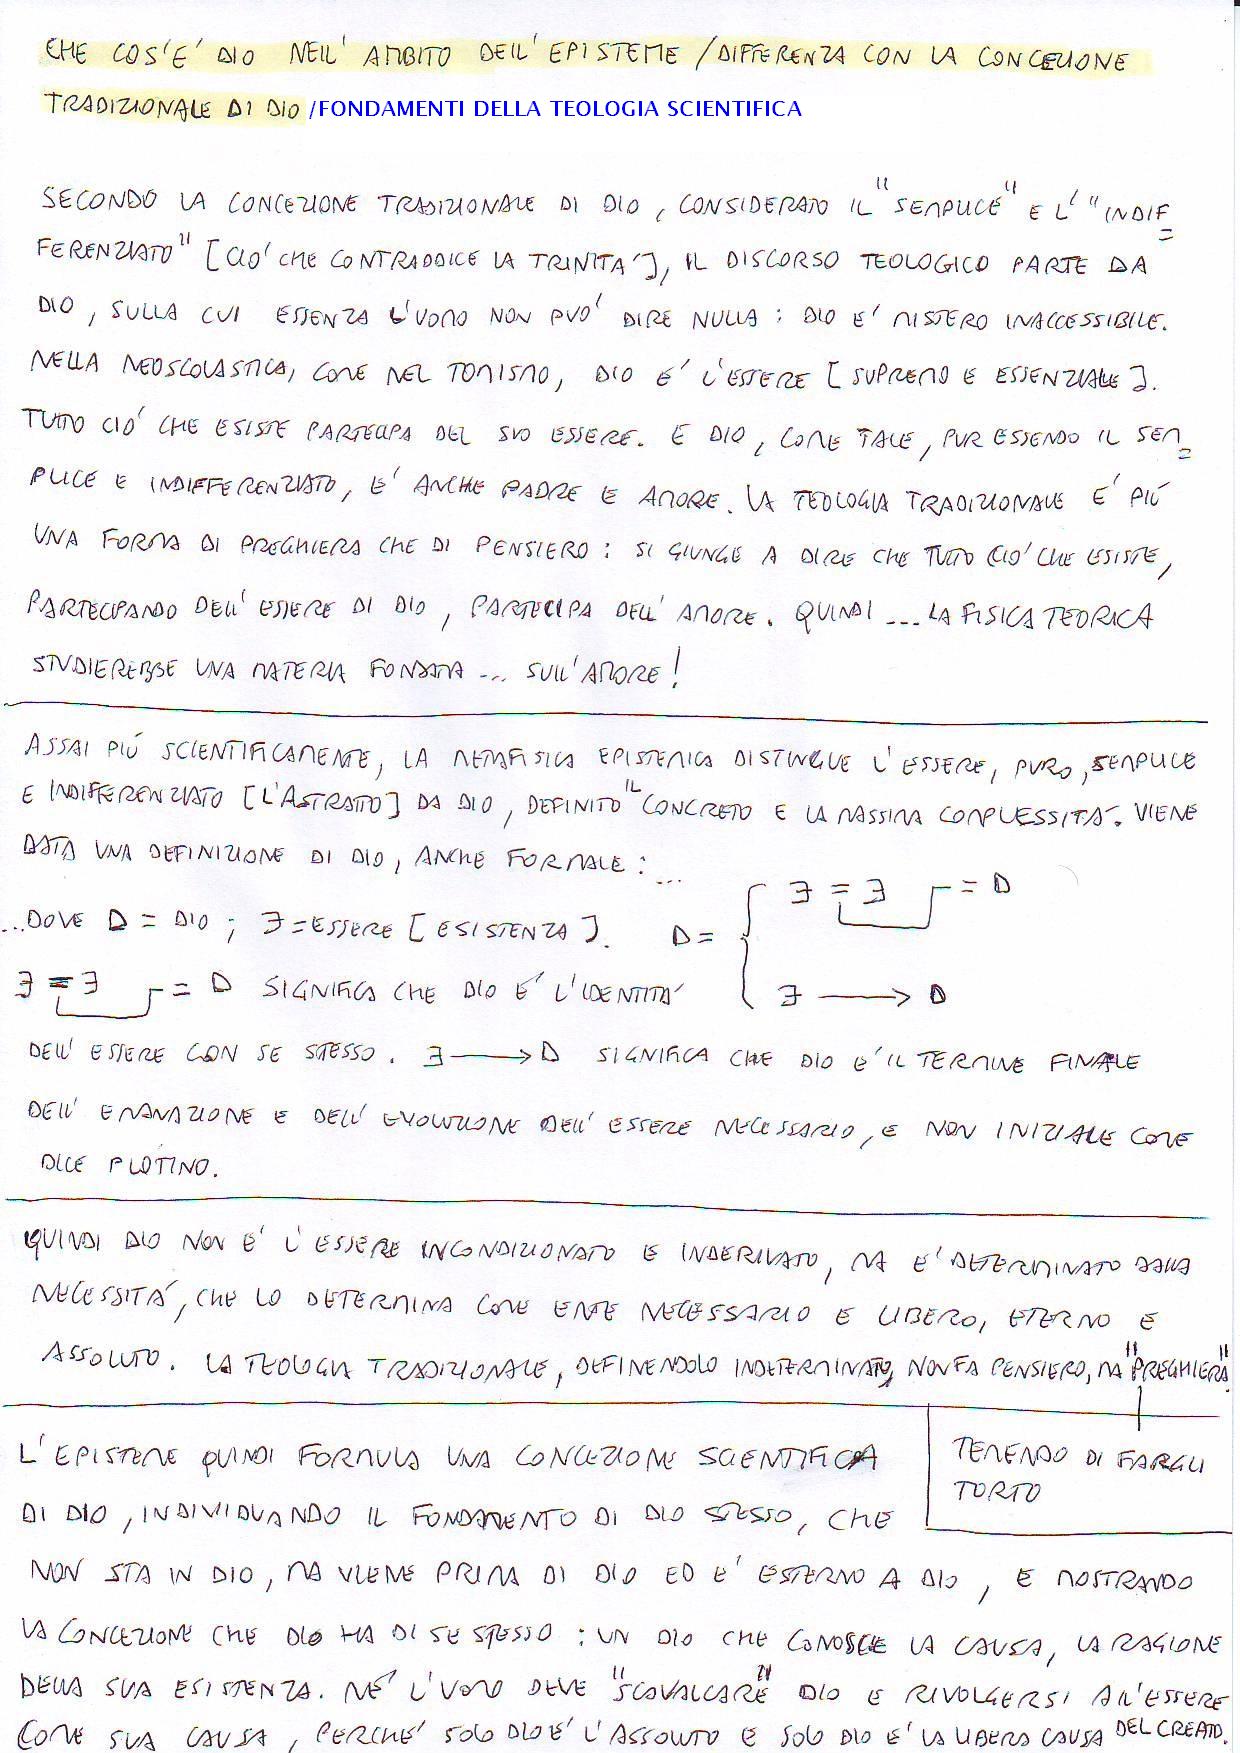 CHE COS'E' DIO NELL'AMBITO DELL'EPISTEME / DIFFERENZA CON LA CONCEZIONE
TRADIZIONALE DI DIO /FONDAMENTI DELLA TEOLOGIA SCIENTIFICA
SECONDO LA CONCEZIONE TRADIZIONALE DI DIO, CONSIDERATO IL "SEMPLICE" E L'"INDIF=
FERENZIATO" [CIO' CHE CONTRADDICE LA TRINITA'], IL DISCORSO TEOLOGICO PARTE DA
DIO, SULLA CUI ESSENZA L'UOMO NON PUO' DIRE NULLA: DIO E' MISTERO INACCESSIBILE.
NELLA NEOSCOLASTICA, COME NEL TOMISMO, DIO E' L'ESSERE [SUPREMO E ESSENZIALE].
TUTTO CIO' CHE ESISTE PARTECIPA DEL SUO ESSERE. E DIO, COME TALE, PUR ESSENDO IL SEM=
PLICE E INDIFFERENZIATO, E' ANCHE PADRE E AMORE. LA TEOLOGIA TRADIZIONALE E' PIÚ
UNA FORMA DI PREGHIERA CHE DI PENSIERO: SI GIUNGE A DIRE CHE TUTTO CIO' CHE ESISTE,
PARTECIPANDO DELL'ESSERE DI DIO, PARTECIPA DELL'AMORE. QUINDI ... LA FISICA TEORICA
STUDIEREBBE UNA MATERIA FONDATA ... SULL'AMORE!
ASSAI PIÚ SCIENTIFICAMENTE, LA METAFISICA EPISTEMICA DISTINGUE L'ESSERE, PURO, SEMPLICE
E INDIFFERENZIATO [L'ASTRATTO] DA DIO, DEFINITO IL CONCRETO E LA MASSIMA COMPLESSITA'. VIENE
DATA UNA DEFINIZIONE DI DIO, ANCHE FORMALE: ...
∃ = ∃ = D
...DOVE D = DIO; ∃ = ESSERE [ESISTENZA]. D =
∃ = ∃ = D SIGNIFICA CHE DIO E' L'IDENTITA' ∃ → D
DELL'ESSERE CON SE STESSO. ∃ → D SIGNIFICA CHE DIO E' IL TERMINE FINALE
DELL'EMANAZIONE E DELL'EVOLUZIONE DELL'ESSERE NECESSARIO, E NON INIZIALE COME
DICE PLOTINO.
QUINDI DIO NON E' L'ESSERE INCONDIZIONATO E INDERIVATO, MA E' DETERMINATO DALLA
NECESSITA', CHE LO DETERMINA COME ENTE NECESSARIO E LIBERO, ETERNO E
ASSOLUTO. LA TEOLOGIA TRADIZIONALE, DEFINENDOLO INDETERMINATO, NON FA PENSIERO, MA "PREGHIERA"
TEMENDO DI FARGLI
TORTO
L'EPISTEME QUINDI FORMULA UNA CONCEZIONE SCIENTIFICA
DI DIO, INDIVIDUANDO IL FONDAMENTO DI DIO STESSO, CHE
NON STA IN DIO, MA VIENE PRIMA DI DIO ED E' ESTERNO A DIO, E MOSTRANDO
LA CONCEZIONE CHE DIO HA DI SE STESSO: UN DIO CHE CONOSCE LA CAUSA, LA RAGIONE
DELLA SUA ESISTENZA. NE' L'UOMO DEVE "SCAVALCARE" DIO E RIVOLGERSI ALL'ESSERE
COME SUA CAUSA, PERCHE' SOLO DIO E' L'ASSOLUTO E SOLO DIO E' LA LIBERA CAUSA DEL CREATO.